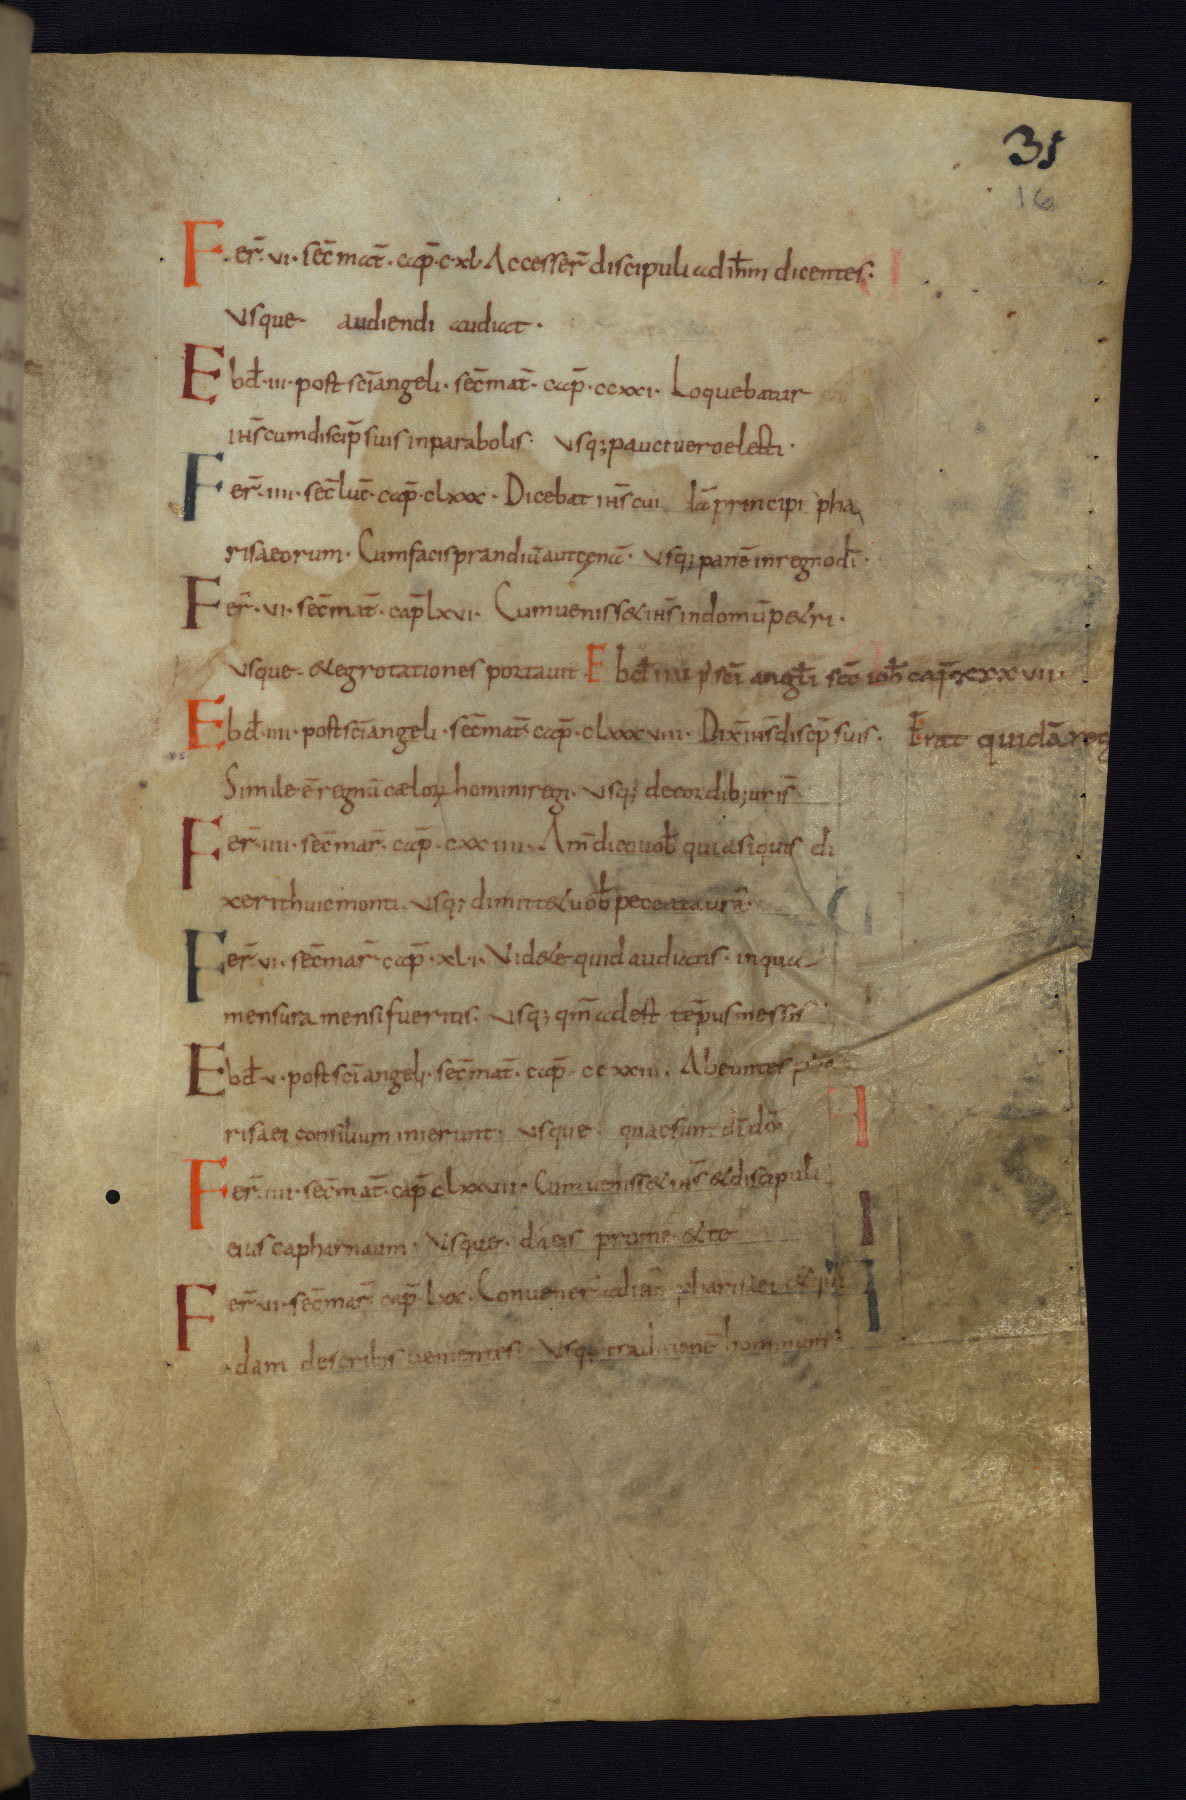 35
16
Fer̄· vi· sec̄ mat̄· cap̄· cxl· Accesser̄ discipuli ad ih̄m dicentes·
usque· audiendi audiat·
Ebd̄· iii· post sc̄i angeli· sec̄ mat̄· cap̄· ccxxi· Loquebatur
ih̄s cum discip̄ suis in parabolis· usq; pauci uero electi·
Fer̄· iiii· sec̄ luc̄· cap̄· clxxx· Dicebat ih̄s cui principi pha
risaeorum· Cum facis prandiū aut cęnā· usq; panē in regno dī·
Fer̄· vi· sec̄ mat̄· cap̄ lxvi· Cum ueniss& ih̄s in domū p&ri·
usque· & egrotationes portauit· Ebd̄ sc̄i angl̄i sec̄ ioh̄ cap̄
Ebd̄· iiii· post sc̄i angeli· sec̄ mat̄· cap̄· clxxxviii· Dix̄ ih̄s discip̄ suis· Erat quidā reg
Simile ē regnū cæloꝝ homini regi· usq; de cordib; uris̄
Fer̄· iiii· sec̄ mar̄· cap̄· cxxiiii· Am̄ dico uob̄ quia siquis di
xerit huic monti· usq; dimitt& uob̄ peccata urā·
Fer̄· vi· sec̄ mar̄· cap̄· xli· Uid&e quid audiatis· in qua
mensura mensi fueritis· usq; qm̄ adest tēpus messis
Ebd̄· v· post sc̄i angeli· sec̄ mat̄· cap̄· ccxxiii· Abeuntes pha
risaei consilium inierunt· usque· quae sunt dī dō·
Fer̄· iiii· sec̄ mat̄· cap̄ clxxviii· Cum ueniss& ih̄s & discipuli
eius capharnaum· usque· da eis pro me & te
Fer̄· vi· sec̄ mar̄· cap̄ lxx· Conuener̄ ad ih̄m pharisaei & qui
dam de scribis uenientes· usq; traditionē hominum